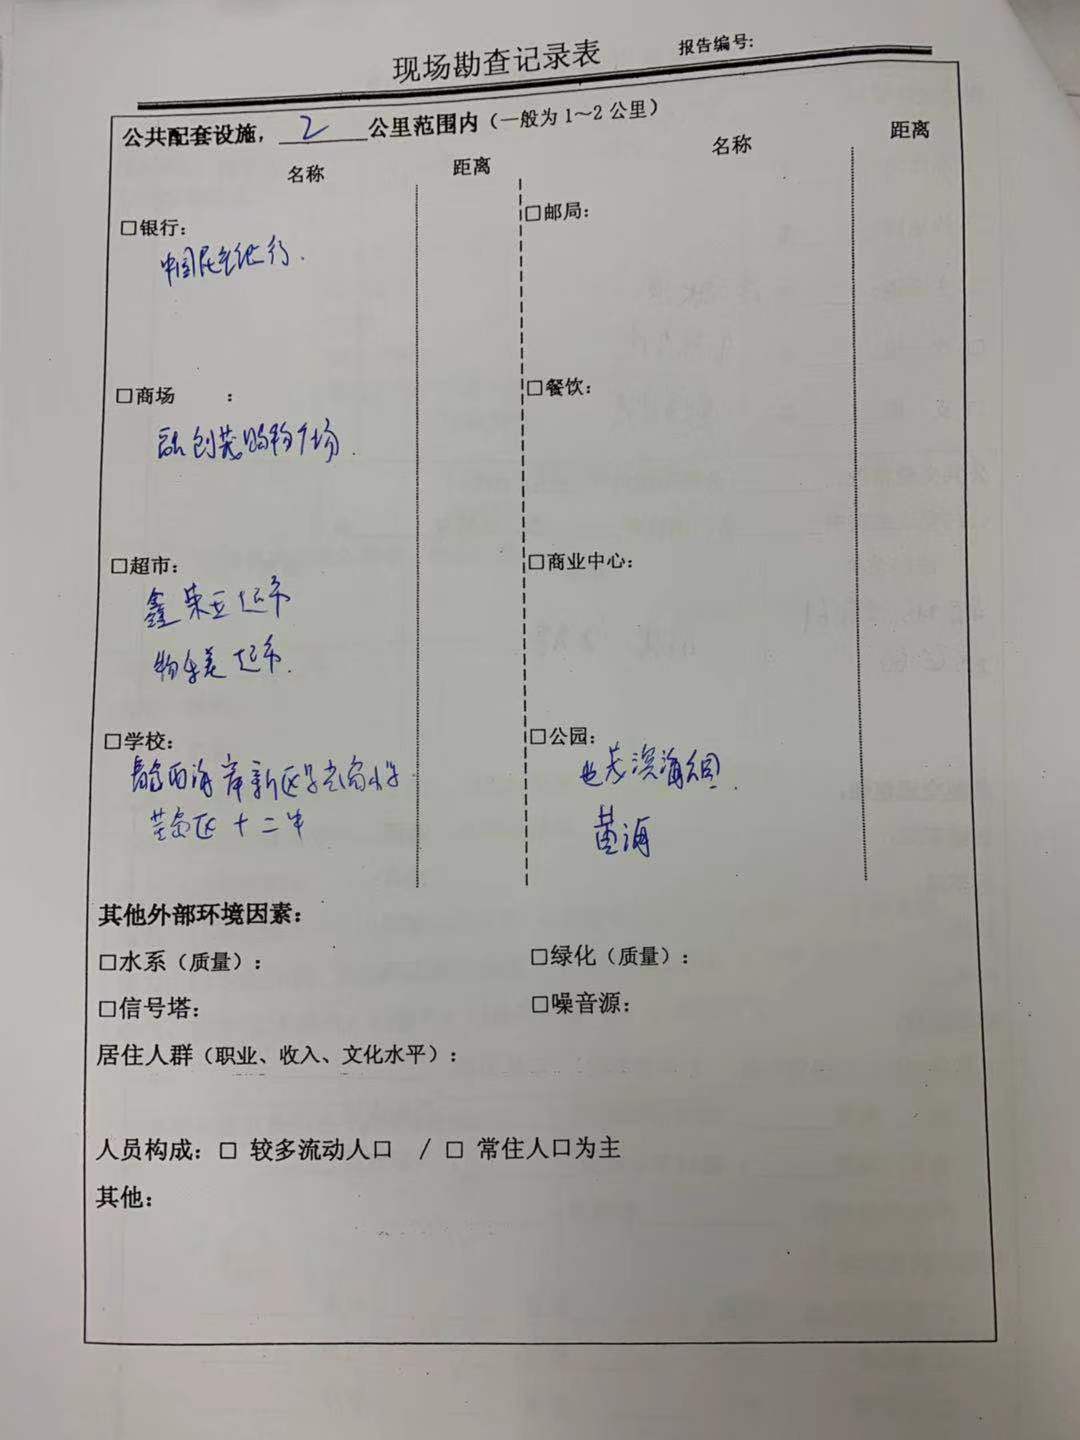 现场勘查记录表 报告编号:
公共配套设施，2公里范围内（一般为1～2公里）
名称 距离 名称 距离
□银行: □邮局:
中国民生银行.
□商场 : □餐饮:
融创茂购物广场.
□超市: □商业中心:
鑫荣五超市
物美超市.
□学校: □公园:
西海岸新区 小学 滨海公园.
黄岛区十二中 黄海
其他外部环境因素:
□水系（质量）: □绿化（质量）:
□信号塔: □噪音源:
居住人群（职业、收入、文化水平）:
人员构成: □ 较多流动人口 / □ 常住人口为主
其他: